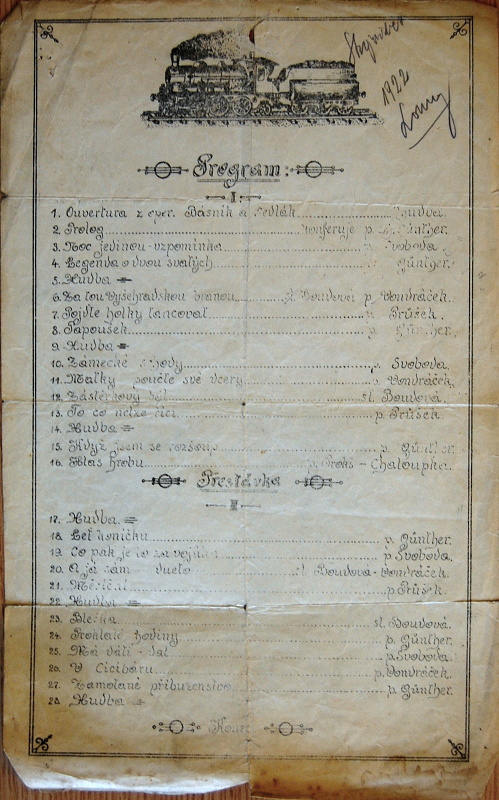 1922
Louny
Program:
I
1. Ouvertura z oper. Básník a Sedlák
2. Prolog konferuje p. Günther.
3. Noc jedinou-vzpomínka Svoboda.
4. Legenda o dvou svatých Günther.
5. Hudba
6. Za tou Vyšehradskou branou sl. Boudová p. Vondráček.
7. Pojďte holky tancovat Průšek.
8. Papoušek Günther.
9. Hudba
10. Zámecké schody p. Svoboda.
11. Matky poučte své dcery Vondráček.
12. Zástěrkový sl. Boudová.
13. To co nelze říci p. Průšek.
14. Hudba
15. Když jsem se rozšoup p. Günther.
16. Hlas hrobu p. Proks - Chaloupka.
Přestávka
II
17. Hudba
18. Leť koníčku p. Günther.
19. Co pak je to za vojáka p. Svoboda.
20. A já sám dueto sl. Boudová - Vondráček.
21. Měsíční p. Průšek.
22. Hudba
23. Bleška sl. Boudová.
24. Prokleté hodiny p. Günther.
25. Má p. Svoboda.
26. V Cicibáru p. Vondráček.
27. Zamotané příbuzenstvo p. Günther.
28. Hudba
Konec